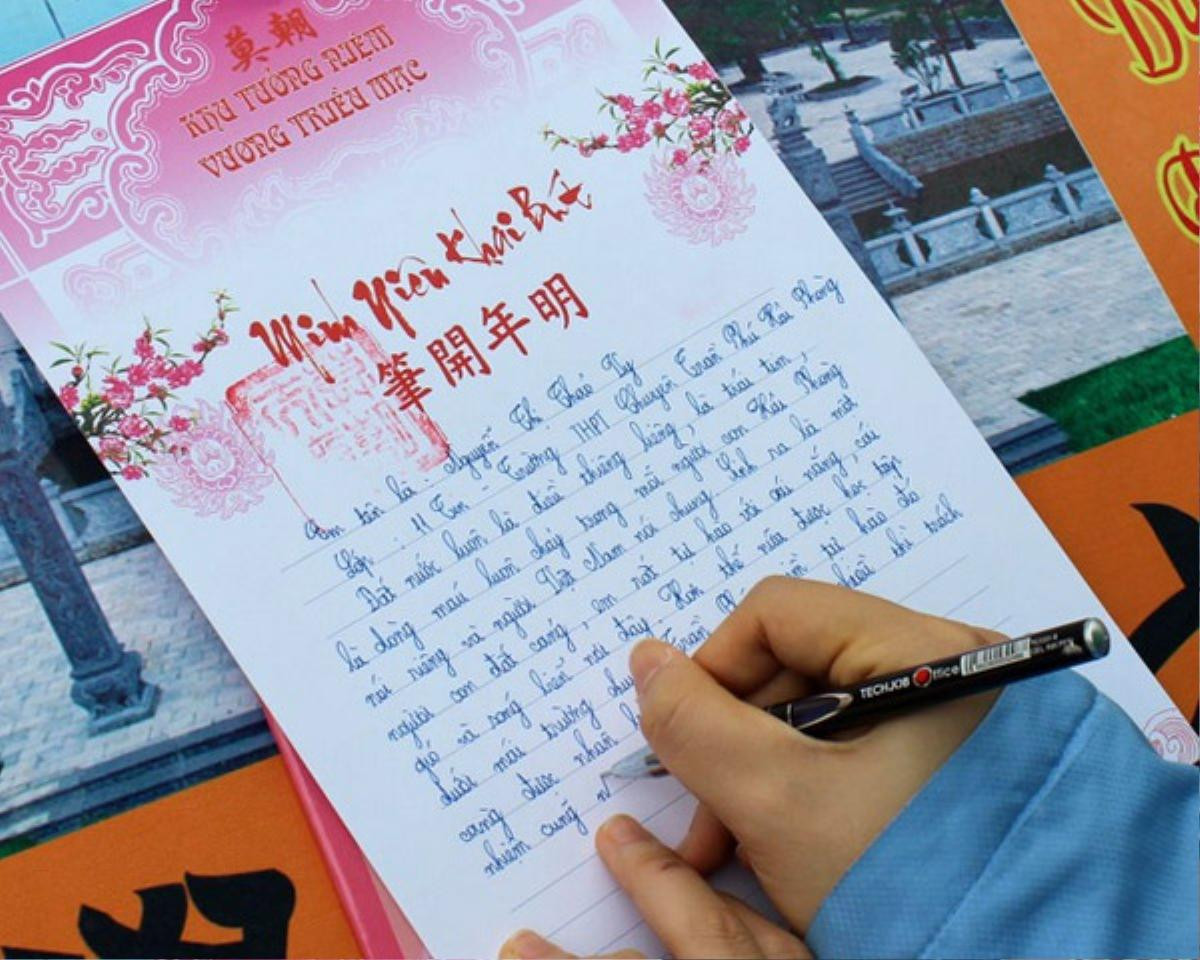 莫朝
KHU TƯỞNG NIỆM
VƯƠNG TRIỀU MẠC
Minh Niên Khai Bút
筆開年明
Em tên là: Nguyễn Thị Thảo Vy
Lớp: 11 Tin - Trường THPT Chuyên Trần Phú Hải Phòng
Đất nước luôn là điều thiêng liêng, là trái tim,
là dòng máu luôn chảy trong mỗi người con Hải Phòng
nói riêng và người Việt Nam nói chung. Sinh ra là một
người con đất cảng, em rất tự hào với cái nắng, cái
gió và sóng biển nơi đây. Hơn thế nữa được học tập
dưới mái trường chuyên Trần tự hào đó
càng được nhân thì trách
nhiệm cũng
TECHJOB Office